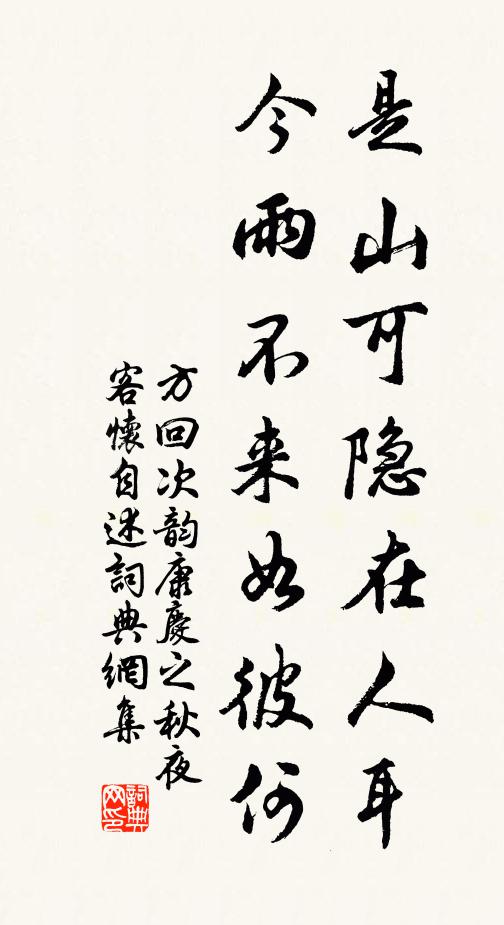 是山可隐在人耳
今雨不来如彼何
方回次韵康庆之秋夜
客懷自述詞典網集
詞典
网印